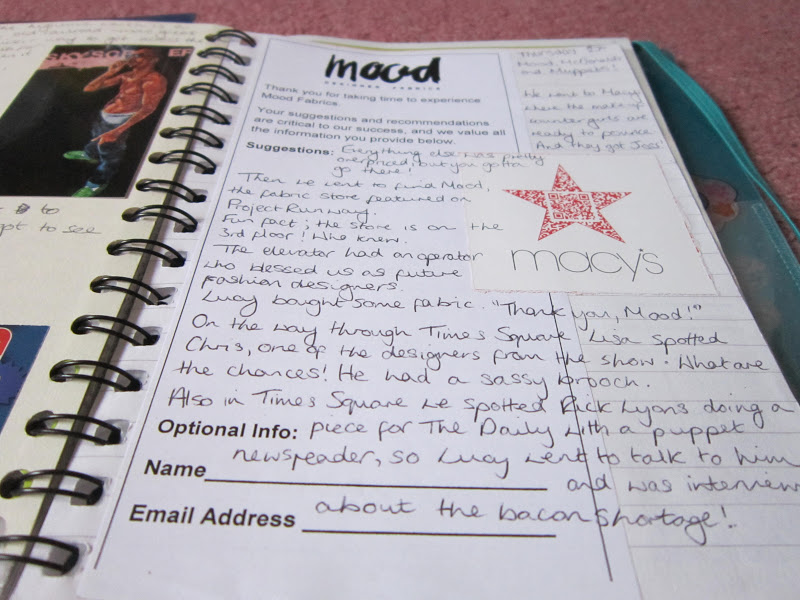 mood
DESIGNER FABRICS
Thank you for taking time to experience
Mood Fabrics.
Your suggestions and recommendations
are critical to our success, and we value all
the information you provide below.
Suggestions: Everything else was pretty
overpriced, but you gotta
go there!
Then we went to find Mood,
the fabric store featured on
Project Runway.
Fun fact; the store is on the
3rd floor! Who knew.
The elevator had an operator
who blessed us as future
Fashion designers.
Lucy bought some fabric. "Thank you, Mood!"
On the way through Times Square Lisa spotted
Chris, one of the designers from the show. What are
the chances! He had a sassy brooch.
Also in Times Square we spotted Rick Lyons doing a
Optional Info: piece for The Daily with a puppet
newsreader, so Lucy went to talk to him
Name
and was interview
Email Address about the bacon shortage!
Thursday
Mood, McDonalds
and Muppets!
We went to Macys
where the makeup
counter guys are
ready to pounce.
And they got Jess!
macy's
to
to see